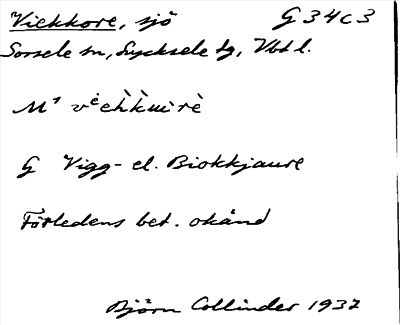 Viekkore, sjö G 34 c 3
Sorsele sn, Lycksele lg, Vbtl.
M¹
G Vigg- el. Biokkjaure
Förledens bet. okänd
Björn Collinder 1937